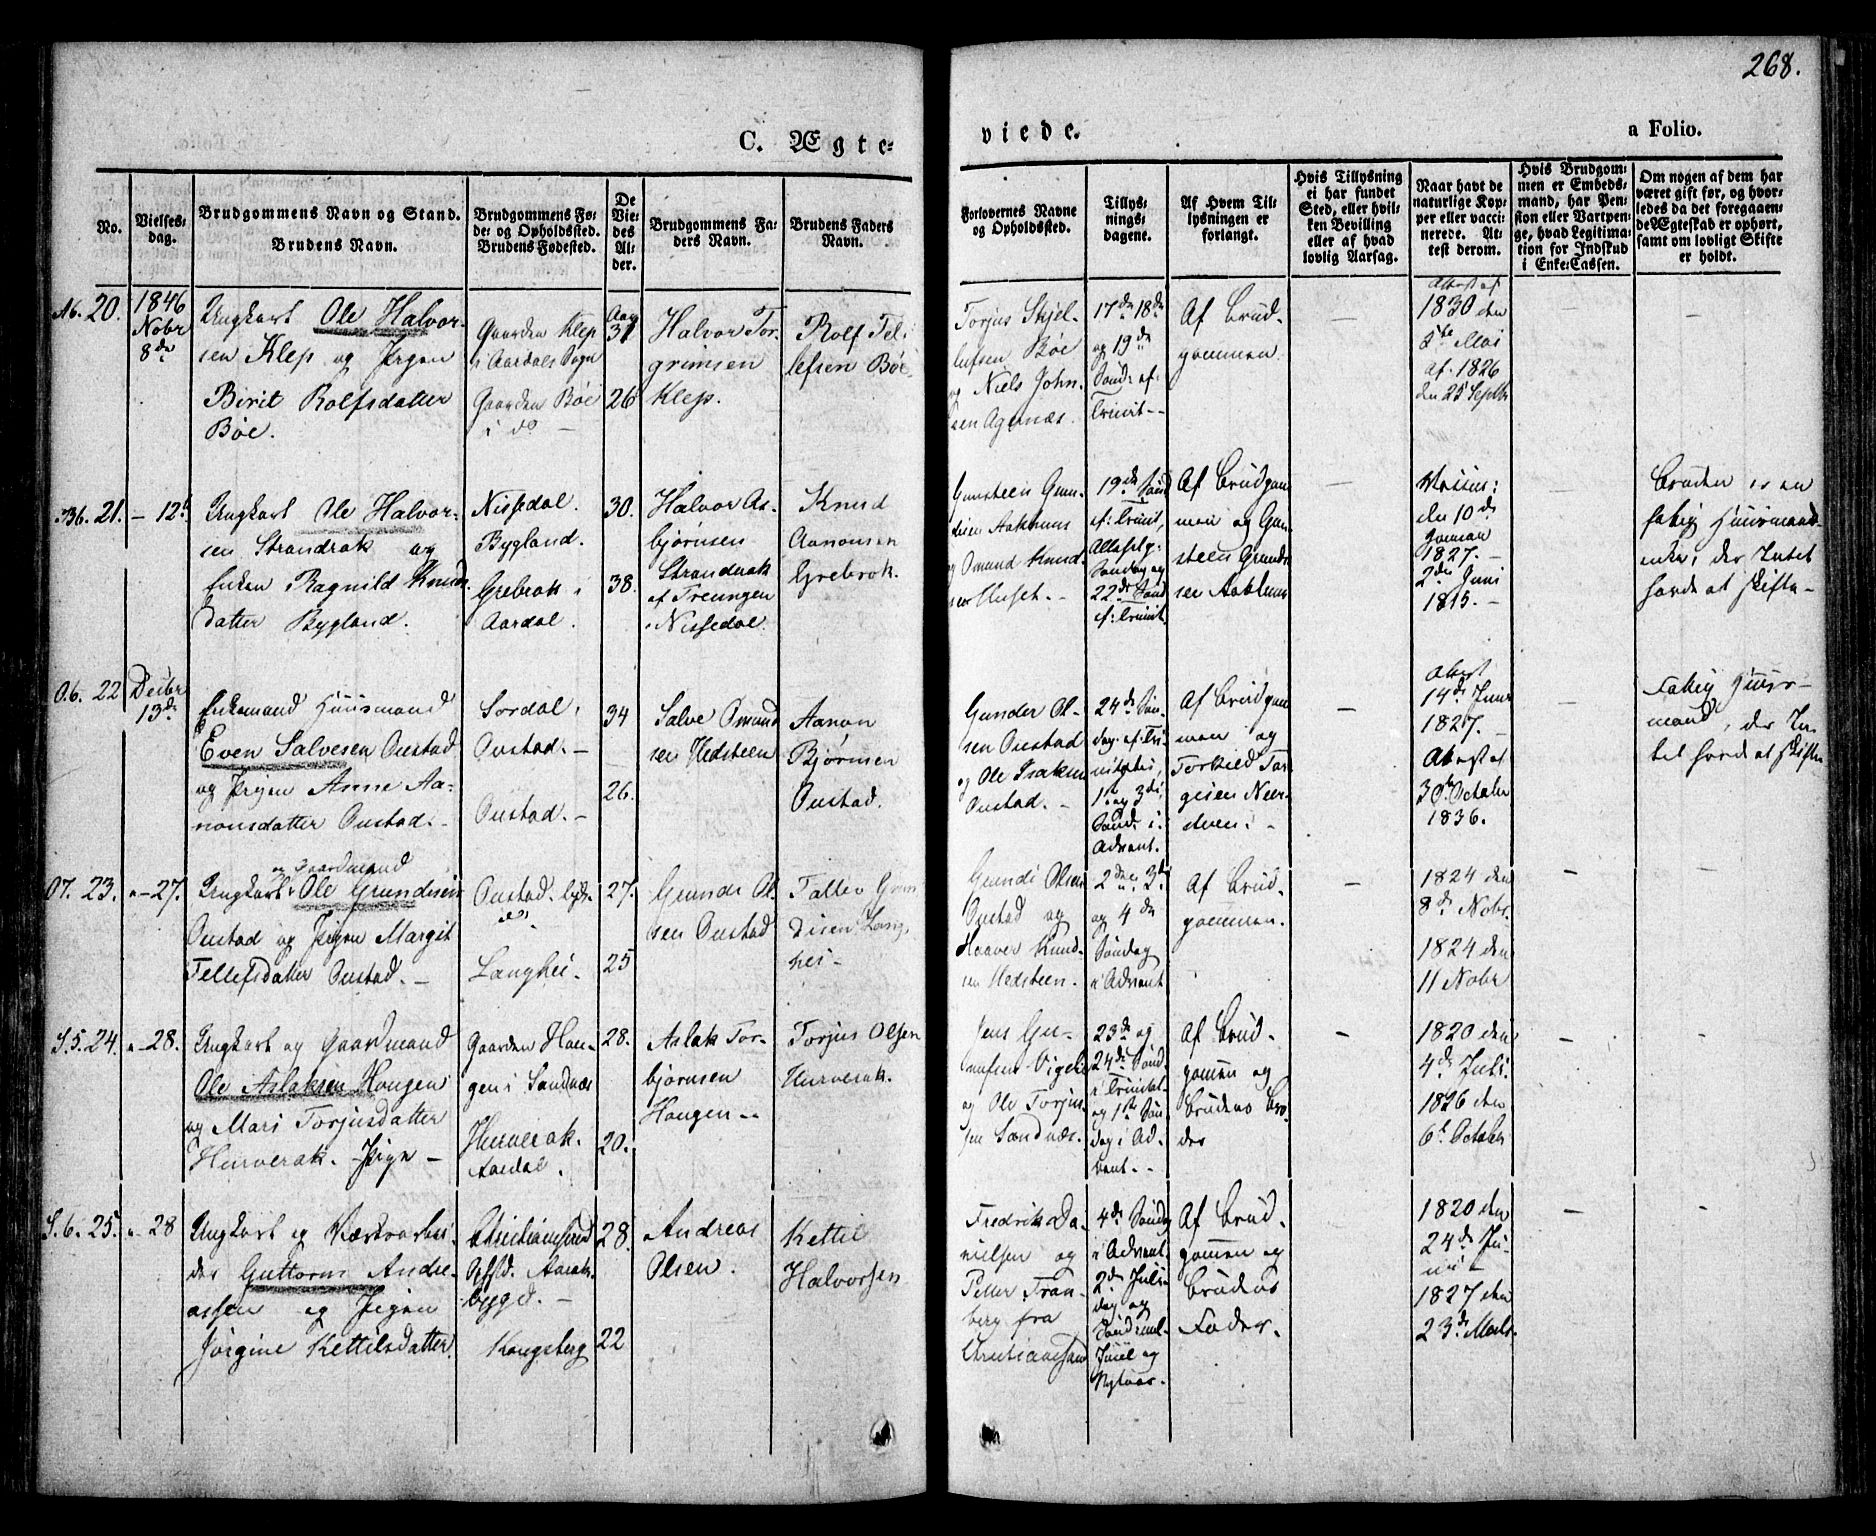 268.
C. Ægte-
viede.
a Folio.
No.
Vielses-
dag.
Brudgommens Navn og Stand.
Brudens Navn.
Brudgommens Fø-
de- og Opholdssted.
Brudens Fødested.
De
Vie-
des
Al-
der.
Brudgommens Fa-
ders Navn.
Brudens Faders
Navn.
Forlovernes Navne
og Opholdssted.
Tillys-
nings-
dagene.
Af Hvem Til-
lysningen er
forlangt.
Hvis Tillysning
ei har fundet
Sted, eller hvil-
ken Bevilling
eller af hvad
lovlig Aarsag.
Naar havt de
naturlige Kop-
per eller vacci-
nerede. At-
test derom.
Hvis Brudgom-
men er Embeds-
mand, har Pen-
sion eller Vartpen-
ge, hvad Legitima-
tion for Indskud
i Enke-Cassen.
Om nogen af dem har
været gift før, og hvor-
ledes da det foregaaen-
de Ægteskab er ophørt,
samt om lovligt Skifte
er holdt.
20.
1846
Novbr
8de
Ungkarl Ole Halvor-
sen Klep og Pigen
Birit Rolfsdatter
Bøe.
Gaarden Klep
i Aardals Sogn
Gaarden Bøe
i do
Aar
31
26
Halvor Tor-
grimsen
Klep.
Rolf Tel-
lefsen Bøe
Torjus Skjel-
lufsen Bøe
og Niels John-
sen Agenæs.
17de 18de
og 19de
Sønd: ef:
Trinit-
Af Brud-
gommen.
Attest af
1830 den
5te Mai
af 1826
den 25 Septbr
21.
12te
Ungkarl Ole Halvor-
sen Strandrak og
Enken Ragnild Knuds
datter Bygland.
Nissedal.
Bygland.
Grebrok i
Aardal.
30.
38.
Halvor As-
bjørnsen
Strandrak
af Treungen
i Nissedal.
Knud
Aanonsen
Grebrok.
Gunsteen Gun-
og Omund Knud-
sen Huset.
19de Sønd
ef: Trinit,
Søndag og
22de Sønd
ef: Trinit.
Af Brudgom
men og Gun-
steen Gunds-
sen
den 10de
Januar
1827.
2den Juni
1815.
Bruden er en
fattig Huusmands-
enke, der Intet
havde at skifte
22
Decbr
13de
Enkemand Huusmand
Even Salvesen Oustad
og Pigen Anne Aa-
nonsdatter Oustad.
Oustad.
Oustad.
34
26.
Salve Omund
sen Hedsteen
Aanon
Bjørnsen
Oustad.
Gunder Ol-
sen Oustad
og Ole Isaksen
Oustad.
24de Søn-
dag ef: Tri-
nitatis,
1te og 3die
Sønd: i
Advent.
Af Brudgom
men og
Torkild Tor-
gisen
Attest
14de Juni
1827.
Attest af
30te October
1836.
Fattig Huus-
mand, der In-
tet havde at skifte
23.
27.
og Gaardmand
Ungkarl Ole Gundersen
Oustad og Pigen Margit
Tellefsdatter Oustad.
Oustad.
Langhei.
27.
25
Gunde Ol-
sen Oustad
Tallev Gun
disen Lang-
hei
Gunde Olsen
Oustad og
Haaver Knud-
sen Hedsteen.
2den 3die
og 4de
Søndag
i Advent
Af Brud-
gommen.
1824 den
8de Novbr.
1824 den
11 Novbr
24.
28.
Ungkarl og Gaardmand
Ole Aslaksen Hougen
og Mari Torjusdatter
Hurverak. Pige
Gaarden Hou-
gen i Sandnæs
Hurverak.
Aardal.
28.
20.
Aslak Tor-
bjørnsen
Hougen
Torjus Olsen
Hurverak.
Jens Gu-
og Ole Torjus-
sen Sandnæs.
23de og
24de Sønd
i Trinitat-
og 1ste Søn
dag i Ad-
vent.
Af Brud-
gomen og
Brudens Bro
der
1820 den
4de Juli
1826 den
6te October
25.
28
Ungkarl og
Guttorm Andre-
assen og Pigen
Jørgine Kettilsdatter.
Christianssand
Kongsberg
28.
22
Andreas
Olsen.
Kettil
Halvorsen
Fredrik Da-
nielsen og
Petter Fran-
berg fra
Christianssand
4de Søndag
i Advent
2den Jule-
dag og
Sønd: mel:
Juul og
Nytaar.
Af Brud-
gomen og
Brudens
Fader.
1820 den
24de Ju-
ni
1827 den
23de